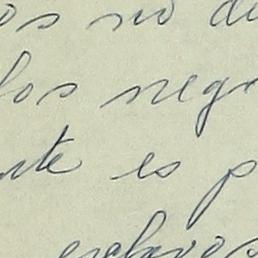 os no de
los negr
nte es p
esclavos